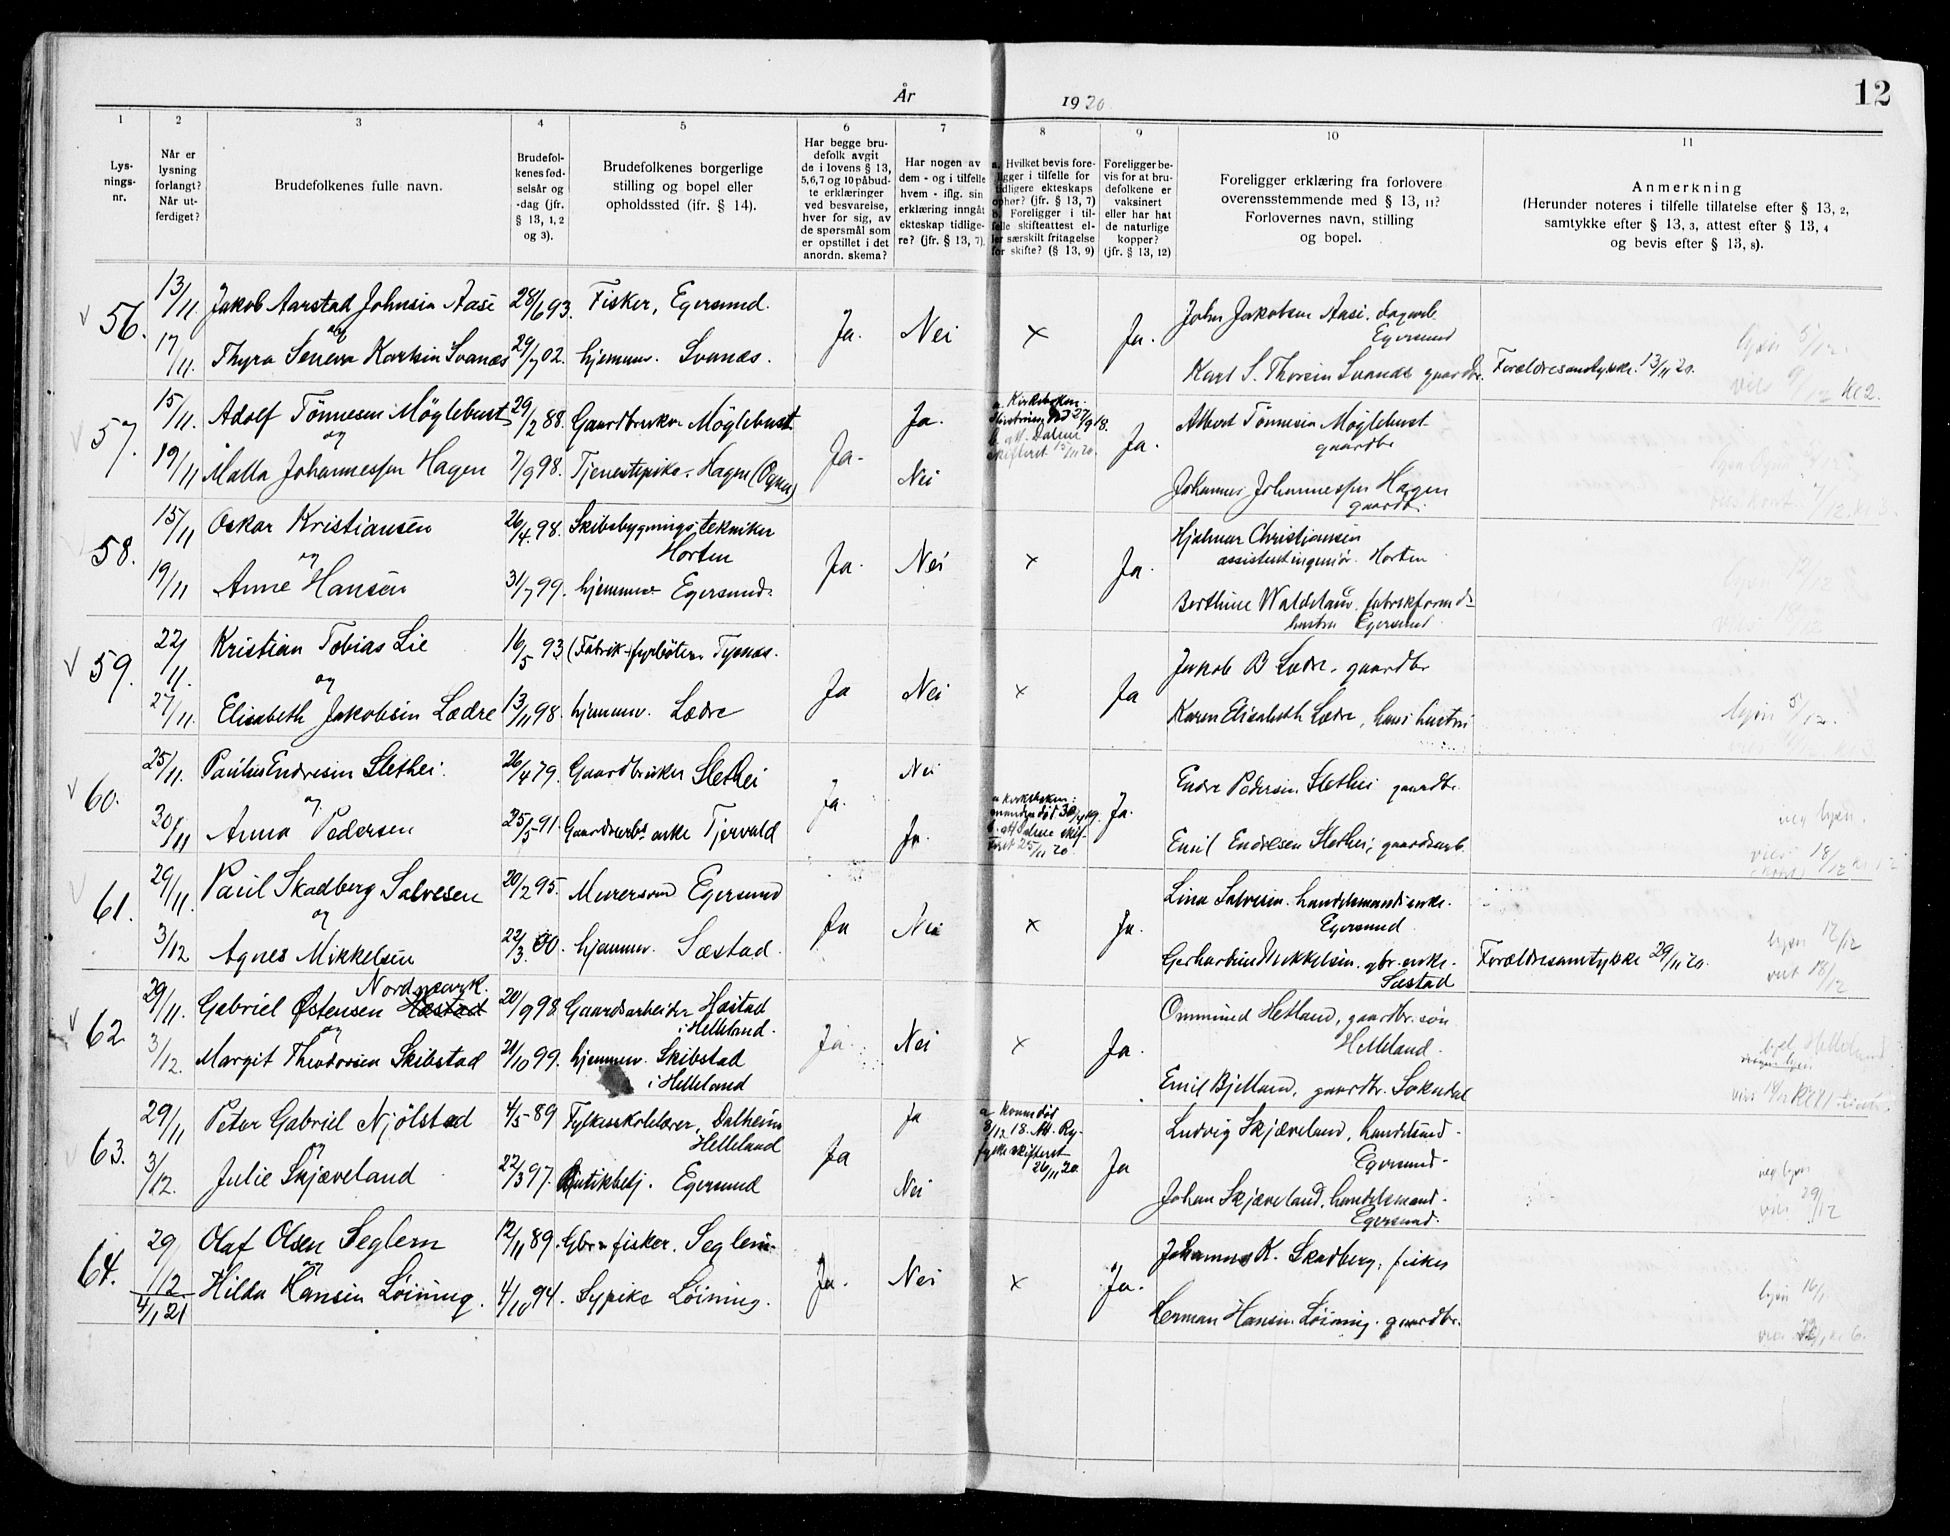 År 1920. 12
1 2 3 4 5 6 7 8 9 10 11
Lysningsnr.
Når er lysning forlangt? Når utferdiget?
Brudefolkenes fulle navn.
Brudefolkenes fødselsår og -dag (jfr. § 13, 1, 2 og 3).
Brudefolkenes borgerlige stilling og bopel eller opholdssted (ifr. § 14).
Har begge brudefolk avgit de i lovens § 13, 5, 6, 7 og 10 påbudte erklæringer ved besvarelse, hver for sig, av de spørsmål som er opstillet i det anordn. skema?
Har nogen av dem - og i tilfelle hvem - iflg. sin erklæring inngåt ekteskap tidligere? (jfr. § 13, 7).
a. Hvilket bevis foreligger i tilfelle for tidligere ekteskaps ophør? (jfr. § 13, 7) b. Foreligger i tilfelle skifteattest eller særskilt fritagelse for skifte? (§ 13, 9)
Foreligger bevis for at brudefolkene er vaksinert eller har hat de naturlige kopper? (jfr. § 13, 12)
Foreligger erklæring fra forlovere overensstemmende med § 13, 11? Forlovernes navn, stilling og bopel.
Anmerkning (Herunder noteres i tilfelle tillatelse efter § 13, 2, samtykke efter § 13, 3, attest efter § 13, 4 og bevis efter § 13, 8).
56. 13/11. Jakob Aarstad Johnsen Aase 28/6 93. Fisker, Egersund. Ja. Nei × Ja. John Jakobsen Aase. dagarb. Egersund
og
17/11. Thyra Severa Karlsen Svanæs 29/7 02. hjemmev. Svanæs. Karl S. Thorsen Svanæs gaardbr. Forældresamtykke 13/11 20.
lysn 5/12.
vies 9/12 kl 2.
57. 15/11. Adolf Tönnesen Möglebust 29/2 88. Gaardbruker Möglebust. Ja. Ja. a. Kirkeboken: Hustruen død 27/9 18. b. att. Dalene skifteret 15/11 20. Ja. Albert Tönnesen Möglebust gaardbr
og
19/11 Malla Johannessen Hagen 7/9 98. Tjenestepike. Hagen (Ogna) Nei Johannes Johannessen Hagen gaardbr.
58. 15/11 Oskar Kristiansen 26/4 98. Skibsbygningstekniker Horten Ja. Nei × Ja. Hjalmar Christiansen assistentingeniør. Horten
og
19/11 Anne Hansen 31/7 99. hjemmev Egersund. Berthine Waldeland. fabrikformdshustru Egersund.
59. 22/11. Kristian Tobias Lie 16/5 93 (Fabrik-) fyrböter. Tysnæs. Ja Nei × Ja Jakob B Lædre. gaardbr
og
27/11. Elisabeth Jakobsen Lædre 13/11 98. hjemmev. Lædre Karen Elisabeth Lædre, hans hustru
lysn 5/12.
60. 25/11. Paulus Endresen Slethei. 26/4 79. Gaardbruker Slethei Ja. Nei Ja. Endre Pedersen Slethei gaardbr.
og
30/11 Anna Pedersen 25/5 91. Gaardarbs. enke Tjervald Ja. a kirkeboken: manden død 30/4 19. b. att Dalene skifteret 25/11 20. Emil Endresen Slethei, gaardarb.
vies 18/12
61. 29/11. Paul Skadberg Salvesen 20/2 95. Murersvend Egersund Ja Nei × Ja. Lina Salvesen. handelsmandsenke. Egersund.
og
3/12 Agnes Mikkelsen 22/3. 00. hjemmev. Sæstad. Gerhardine Mikkelsen. gbr. enke. Sæstad Forældresamtykke 29/11 20.
lysn 12/12
viet 18/12
62. 29/11. Gabriel Østensen Hæstad Nordmark. 20/9 98 Gaardsarbeider Hæstad i Helleland. Ja. Nei × Ja. Ommund Hetland, gaardbr. søn Helleland.
og
3/12. Margit Theodorsen Skibstad 21/10 99. hjemmev. Skibstad i Helleland Emil Bjelland, gaardbr. Sokndal
63. 29/11 Peter Gabriel Njölstad 4/5 89 Fylkesskolelærer, Dalheim Helleland Ja Ja a konen død 8/12 18. Att. Ryfylke skifteret 26/11 20 Ja Ludvig Skjæveland, handelsmd. Egersund.
og
3/12. Julie Skjæveland 22/3 97. Butikbetj. Egersund Nei Johan Skjæveland. handelsmand. Egersund.
vies 29/12
64. 29/ Olaf Olsen Seglem 12/11 89. Gbr. fisker. Seglem. Ja. Nei × Ja. Johannes K. Skadberg, fisker
og
1/12 Hilda Hansen Löining. 4/10 94. Sypike Löining. Herman Hansen Löining. gaardbr.
4/1 21
lysn 16/1